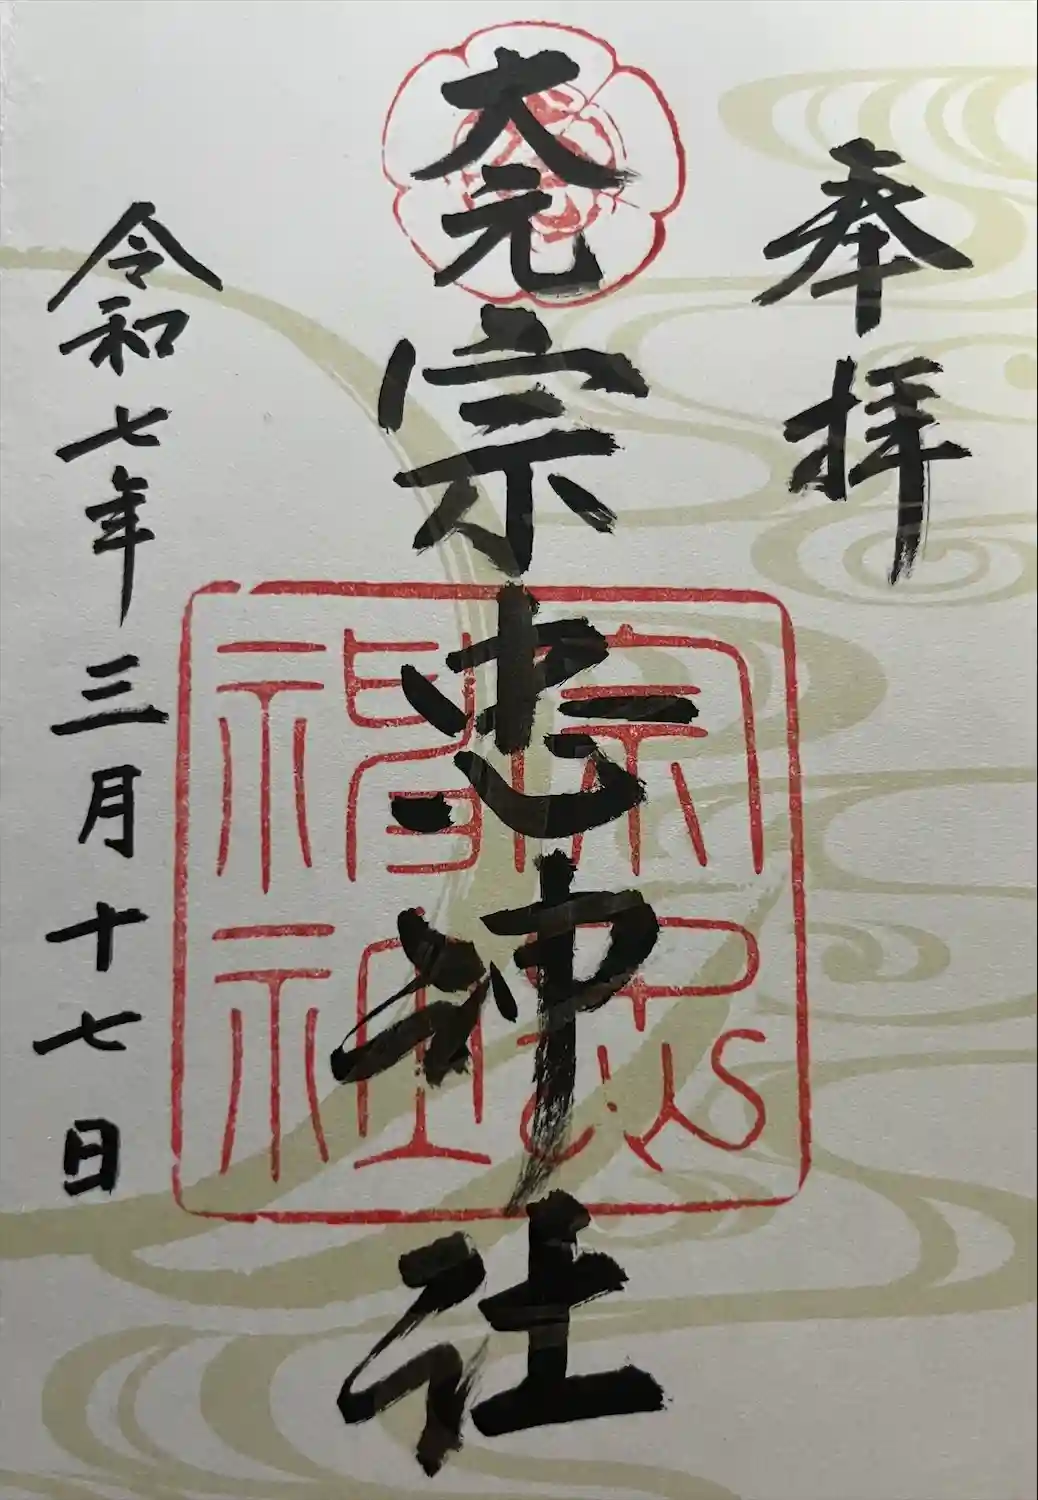 奉拝
大元
宗忠神社
宗忠
神社
令和七年三月十七日